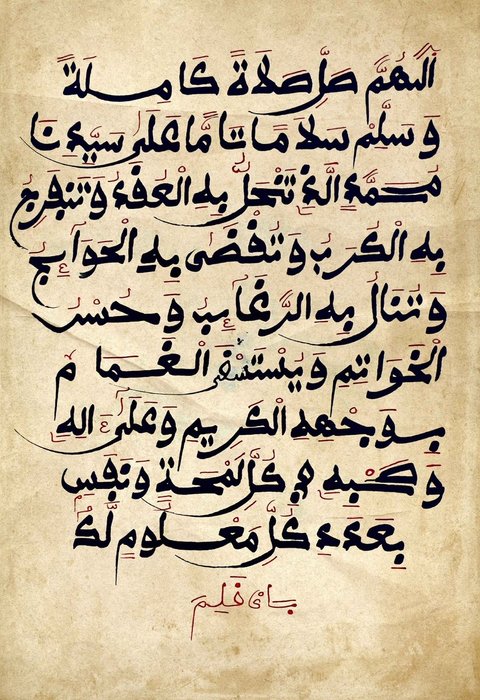 اَللّٰهُمَّ صَلِّ صَلَاةً كَامِلَةً
وَسَلِّمْ سَلَامًا تَامًّا عَلَى سَيِّدِنَا
مُحَمَّدٍ الَّذِي تَنْحَلُّ بِهِ الْعُقَدُ وَتَنْفَرِجُ
بِهِ الْكُرَبُ وَتُقْضَى بِهِ الْحَوَائِجُ
وَتُنَالُ بِهِ الرَّغَائِبُ وَحُسْنُ
الْخَوَاتِمِ وَيُسْتَسْقَى الْغَمَامُ
بِوَجْهِهِ الْكَرِيمِ وَعَلَى ءَالِهِ
وَصَحْبِهِ فِي كُلِّ لَمْحَةٍ وَنَفَسٍ
بِعَدَدِ كُلِّ مَعْلُومٍ لَّكَ